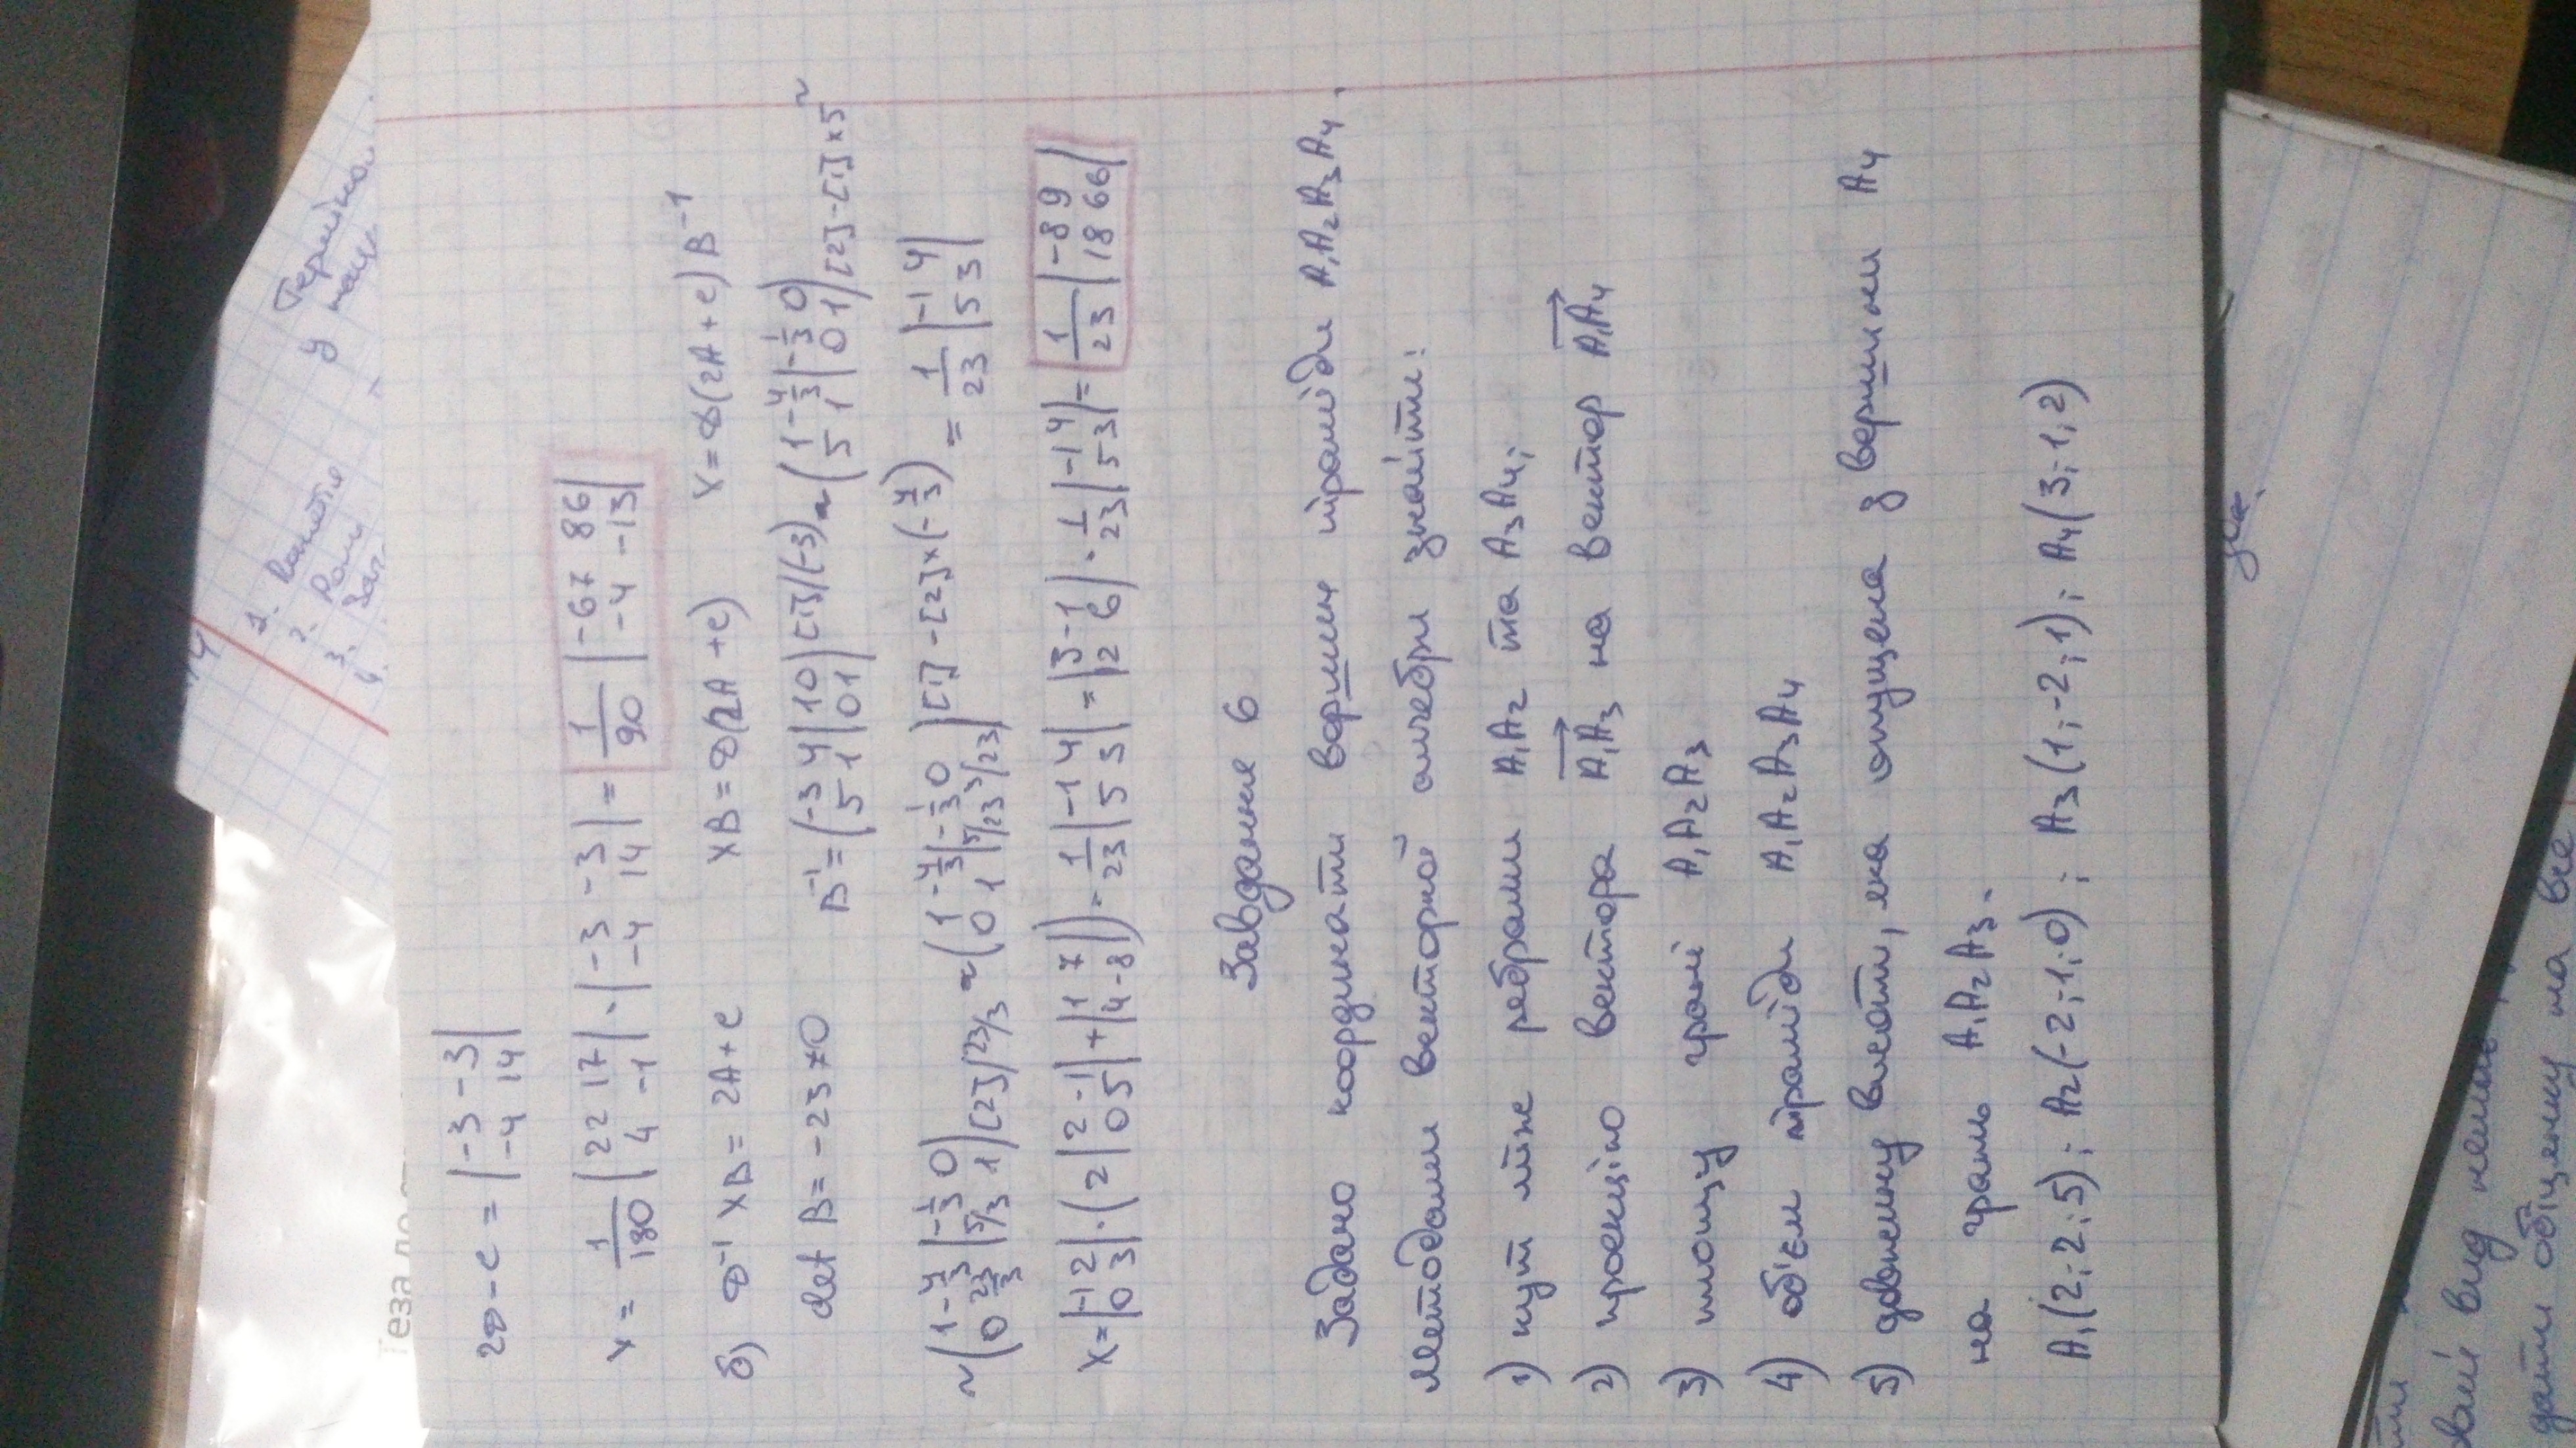 1. Поняття
2. Роль
3. Заг
4.
у
Теза до
2D - C = |-3 -3; -4 14|
X = 1/180 |22 17; 4 -1| · |-3 -3; -4 14| = 1/90 |-67 86; -4 -13|
б) D⁻¹ XB = 2A + C XB = D(2A + C) X = D(2A + C) B⁻¹
det B = -23 ≠ 0 B⁻¹ = (-3 4 | 1 0; 5 1 | 0 1) [1]/(-3) ~ (1 -4/3 | -1/3 0; 5 1 | 0 1) [2]-[1]×5 ~
~ (1 -4/3 | -1/3 0; 0 23/3 | 5/3 1) [2]/23/3 ~ (1 -4/3 | -1/3 0; 0 1 | 5/23 3/23) [1]-[2]×(-4/3) = 1/23 |-1 4; 5 3|
X = |-1 2; 0 3| · (2 |2 -1; 0 5| + |1 7; 4 -8|) · 1/23 |-1 4; 5 3| = |3 -1; 12 6| · 1/23 |-1 4; 5 3| = 1/23 |-8 9; 18 66|
Завдання 6
Задано координати вершин піраміди A₁A₂A₃A₄.
Методами векторної алгебри знайти:
1) кут між ребрами A₁A₂ та A₃A₄;
2) проекцію вектора A₁A₃ на вектор A₁A₄
3) площу грані A₁A₂A₃
4) об'єм піраміди A₁A₂A₃A₄
5) довжину висоти, яка опущена з вершини A₄
на грань A₁A₂A₃.
A₁(2;2;5); A₂(-2;-1;0); A₃(1;-2;1); A₄(3;-1;2)
вид немає
дати обіцянку на все